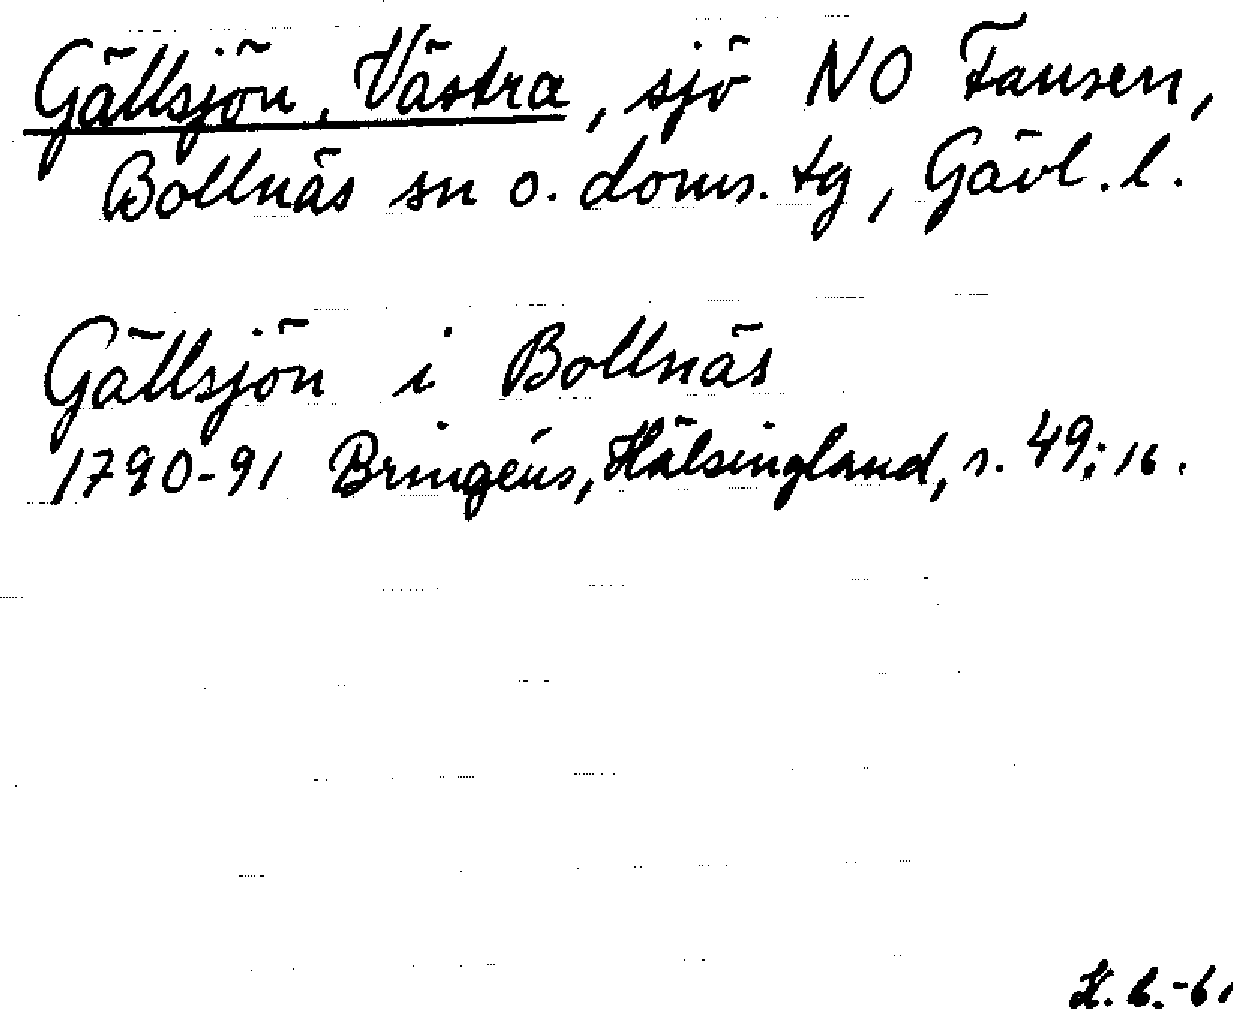 Gällsjön, Västra, sjö NO Fansen,
Bollnäs sn o. doms. tg, Gävl. l.
Gällsjön i Bollnäs
1790-91 Bringéus, Hälsingland, s. 49; 16.
K. B. -61